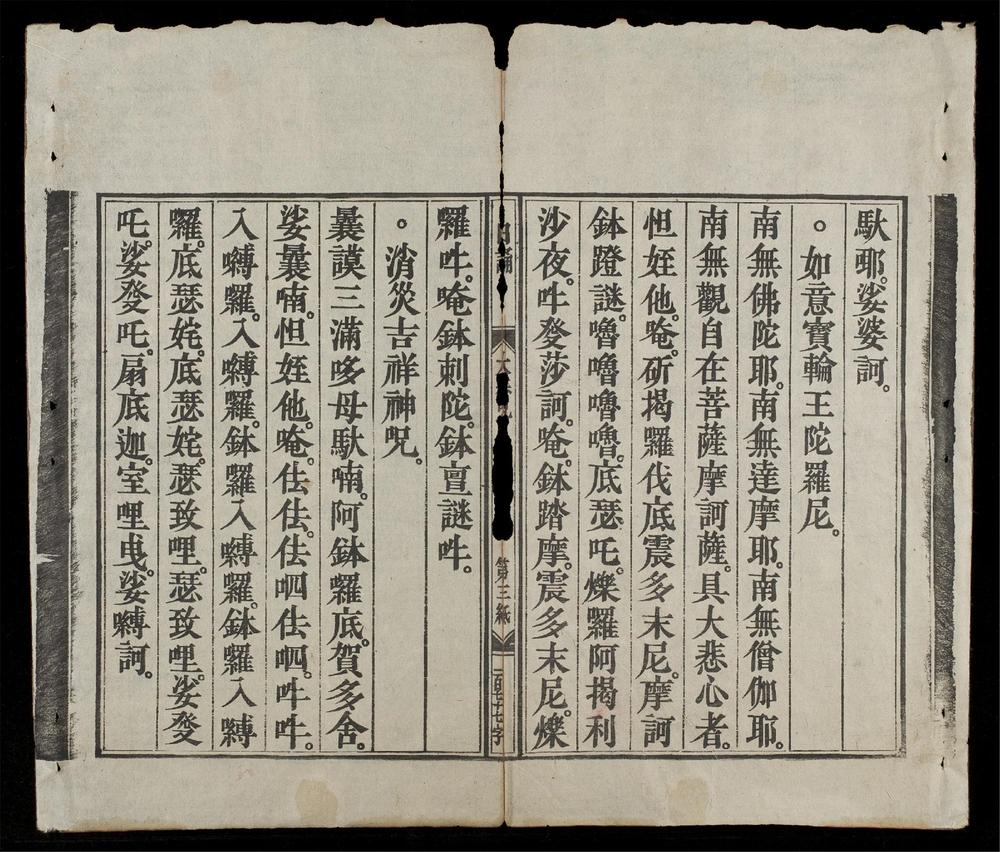 馱耶。娑婆訶。
。如意寶輪王陀羅尼。
南無佛陀耶。南無達摩耶。南無僧伽耶。
南無觀自在菩薩摩訶薩。具大悲心者。
怛姪他。唵。斫揭羅伐底震多末尼。摩訶
鉢蹬謎。嚕嚕嚕嚕。底瑟吒。爍羅阿揭利
沙夜。吽癹莎訶。唵。鉢踏摩。震多末尼。爍
第三紙
羅吽。唵鉢刺陀。鉢亶謎吽。
。消災吉祥神呪。
曩謨三滿哆母馱喃。阿鉢羅底。賀多舍。
娑曩喃。怛姪他。唵。佉佉。佉呬佉呬。吽吽。
入嚩囉。入嚩囉。鉢囉入嚩囉。鉢囉入嚩
囉。底瑟姹。底瑟姹。瑟致哩。瑟致哩。娑癹
吒。娑癹吒。扇底迦。室哩曳。娑嚩訶。